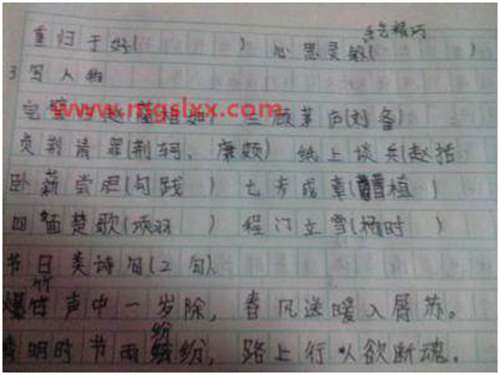 手艺精巧
重归于好( ) 心思灵敏( )
3写人物
www.mgslxx.com
完璧归赵(蔺相如) 三顾茅庐(刘备)
负荆请罪(荆轲、廉颇) 纸上谈兵(赵括
卧薪尝胆(句践) 七步成章(曹植)
四面楚歌(项羽 ) 程门立雪(杨时)
节日类诗句(2句)
爆竹声中一岁除,春风送暖入屠苏。
清明时节雨纷纷,路上行人欲断魂。